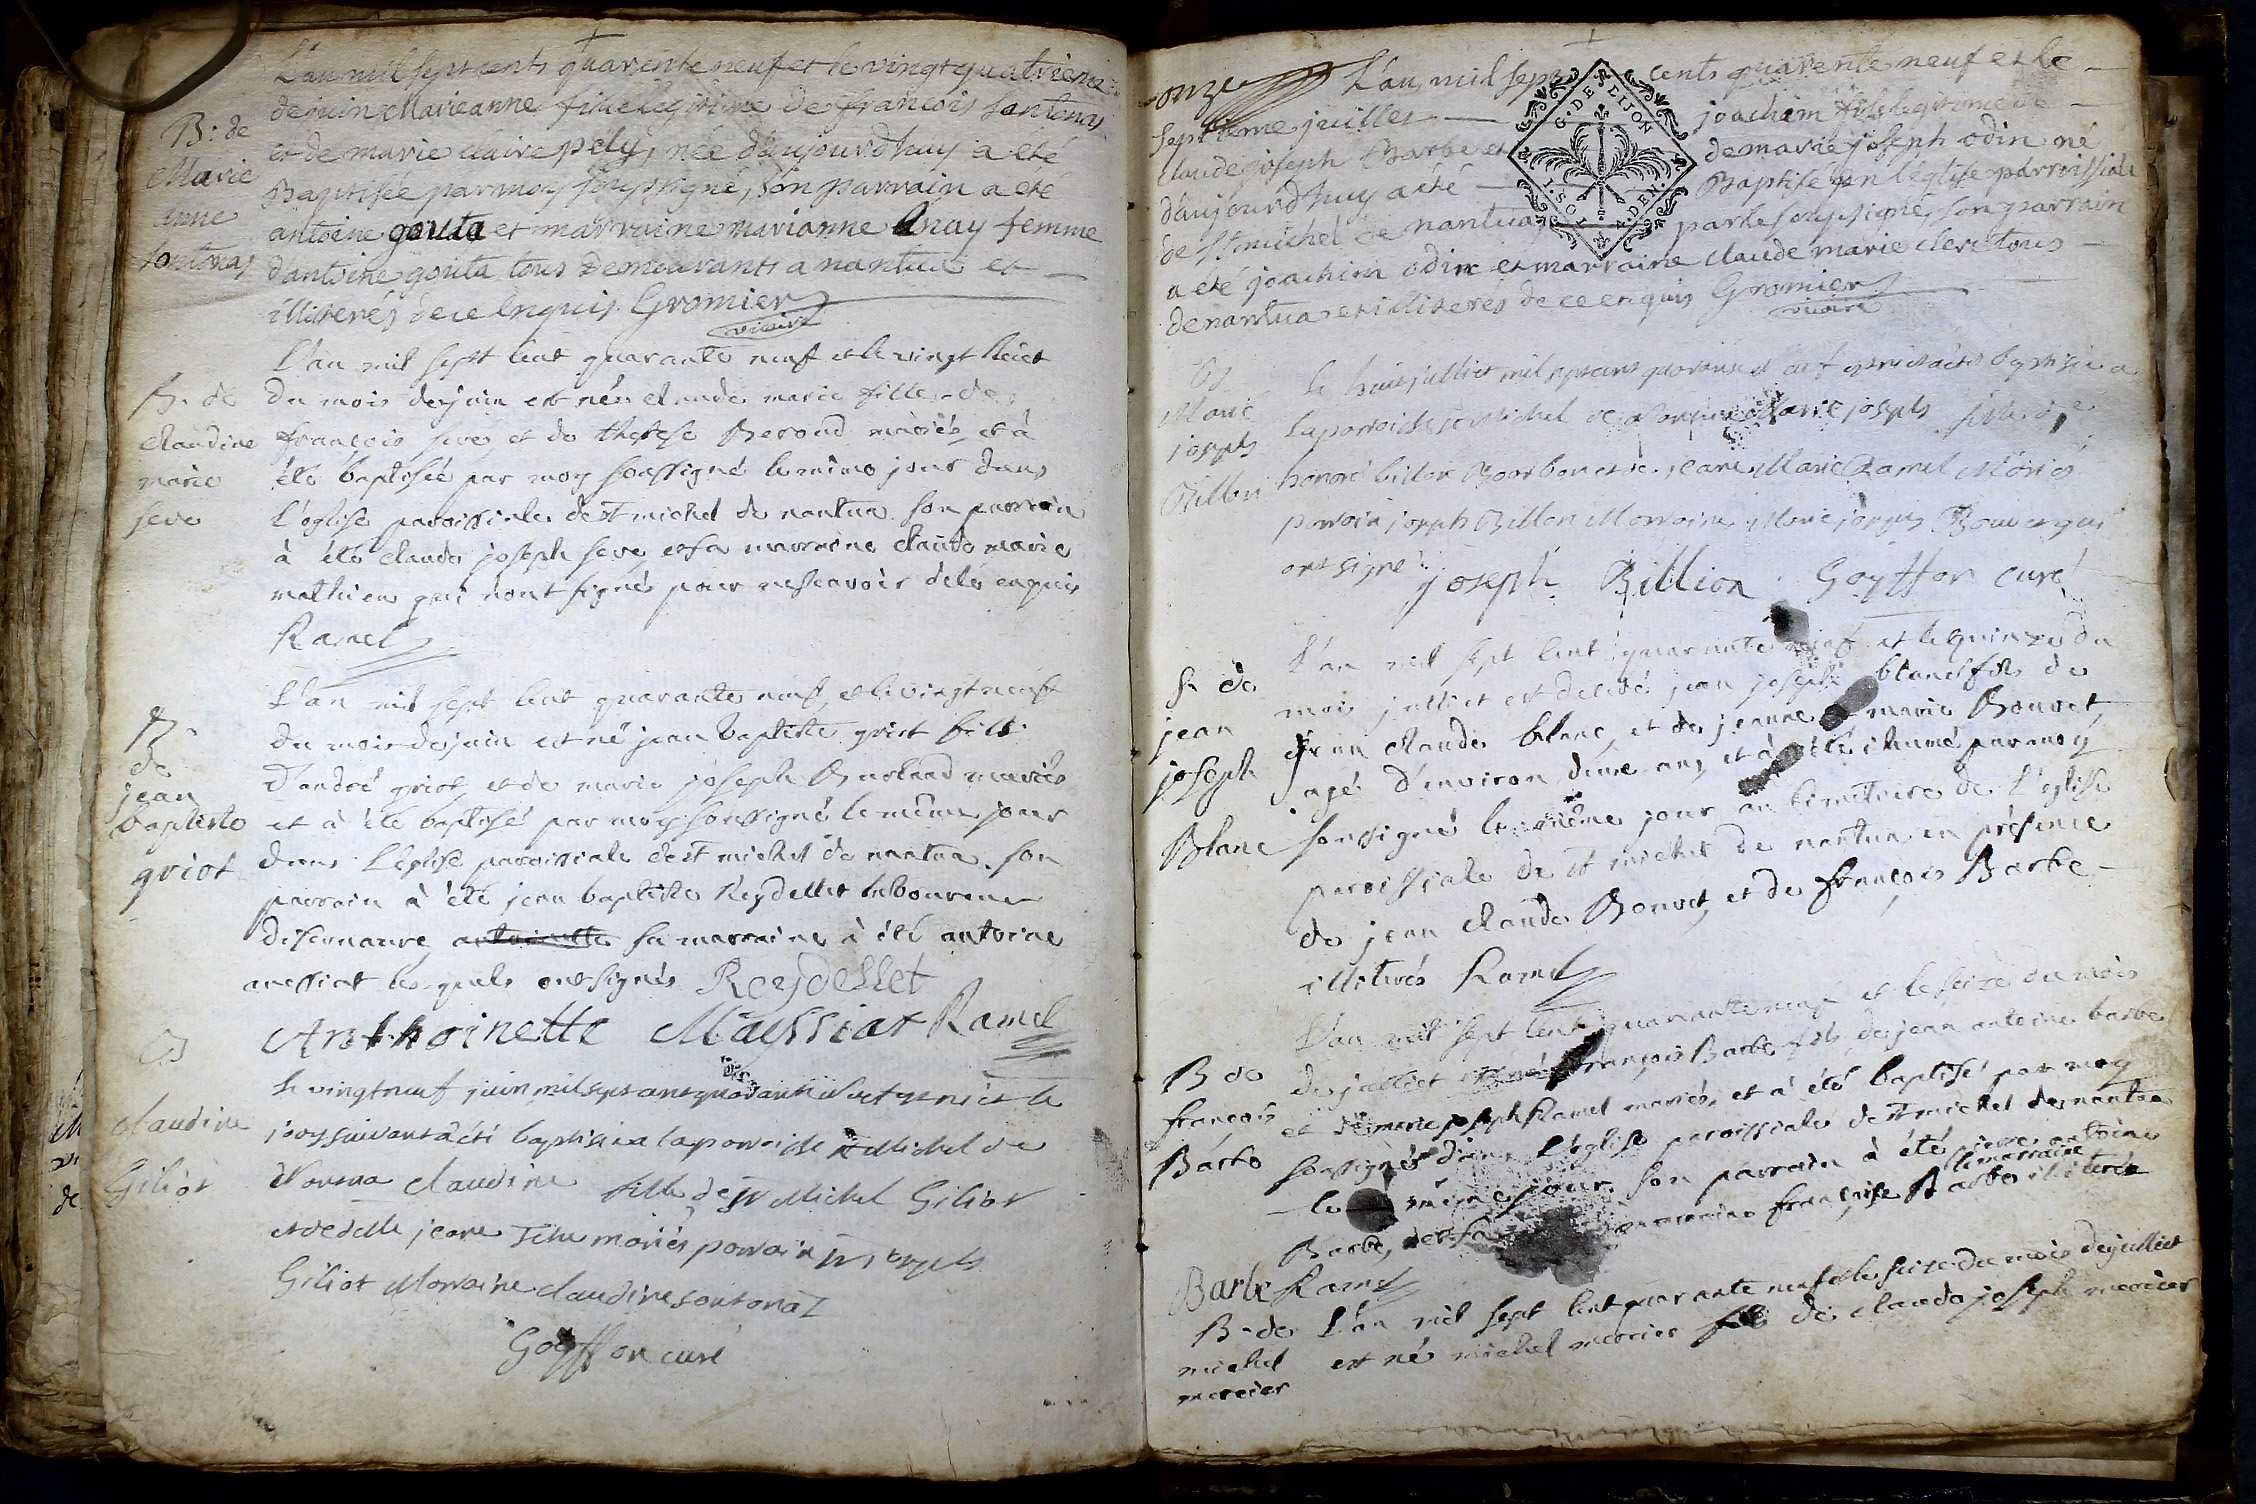 L'an mil sept cents quarente neuf et le vingt quatrieme
de juin Marieanne fille legitime de francois sontonas
B: de
Marie
anne
sontonas
et de marie claire pely, née d'aujourdhuy a eté
Baptisée par moy soussigné, son parrain a été
antoine gouta et marraine marianne anay femme
d'antoine gouta tous demeurants a nantua et
illiterés de ce enquis. Gromier
vicaire
L'an mil sept cent quarante neuf et le vingt huict
B. de
claudine
marie
seve
du mois de juin est née claude marie fille de
françois seve, et de therese Beroud mariés, et à
été baptisée par moy soussigné le même jour dans
L'eglise paroissiale de st michel de nantua. son parrain
à été claude joseph seve, et sa marraine claude marie
mathieu qui n'ont signés pour ne scavoir de ce enquis
Ramel
L'an mil sept cent quarante neuf, et le vingt neuf
B.
de
jean
baptiste
griot
du mois de juin est né jean baptiste griot fils
d'andré griot, et de marie joseph mariés
et à été baptisé par moy soussigné le même jour
dans L'eglise paroissiale de st michel de nantua. son
parrain à été jean baptiste Reydellet laboureur
antoinette sa marraine à été antoine
messiat les quels ont signés Reydellet
Anthoinette Mayssiat Ramel
B
claudine
Giliot
le vingt neuf juin mil sept cens quarante neuf est née et le
jour suivant a été baptisée a la paroisse st Michel de
Nantua claudine fille de sr Michel Giliot
et de delle jeane mariés parrain sr joseph
Giliot Marraine claudine sontonaz
Goyffon curé
onze
L'an mil sept cents quarente neuf et le
septieme juillet joachim fils legitime de
claude joseph Barbe et de marie joseph odin né
d'aujourdhuy a été Baptisé en l'eglise parroissiale
de St michel de nantua par le soussigné, son parrain
a été joachim odin et marraine claude marie clerc tous
de nantua et illiterés de ce enquis Gromier
vicaire
G. DE DIJON
1. SOL 4. DEN.
B
Marie
joseph
Billon
le huit juillet mil sept cens quarante neuf est née et a été baptisée a
la paroisse st Michel de Nantua Marie joseph fille de
honoré billon Bourbon et de jeane Marie Ramel Mariés
parrain joseph Billon Marraine Marie joseph Bouvet qui
ont signé
joseph Billion Goyffon curé
L'an mil sept cent quarante neuf et le quinze du
S. de
jean
joseph
Blanc
mois juillet est decedé jean joseph blanc fils de
jean claude blanc, et de jeanne marie Bouvet,
agé d'environ deux ans, et à été inhumé par moy
soussigné le même jour au cimetiere de L'eglise
paroissiale de st michel de nantua en présence
de jean claude Bouvet, et de françois Barbe
illiterés Ramel
L'an mil sept cent quarante neuf et le seize du mois
B de
francois
Barbe
de juillet est né françois Barbe fils de jean antoine barbe
et de marie joseph Ramel mariés, et à été baptisé par moy
soussigné dans L'eglise paroissiale de st michel de nantua
le même jour. son parrain à été pierre antoine
Barbe, et sa marraine françoise Barbe illiterés
la marraine
Barbe Ramel
B. de
michel
mercier
L'an mil sept cent quarante neuf et le seize du mois de juillet
est né michel mercier fils de claude joseph mercier